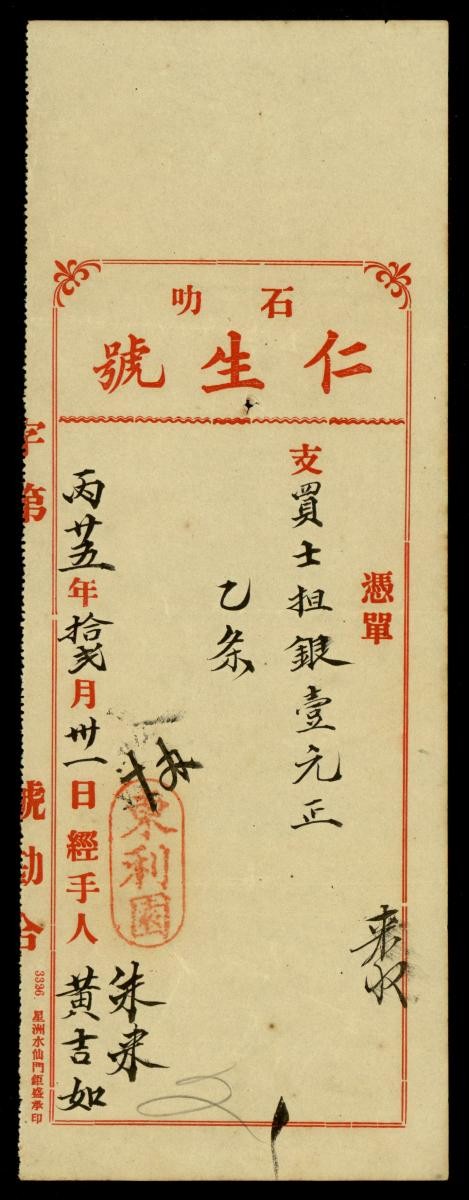 石叻
仁生號
憑單
支買士担銀壹元正
乙条
丙廿五年拾弍月卅一日經手人黃吉如
東利園
來收
字第 號勘合
3336 星洲水仙門鉅盛承印